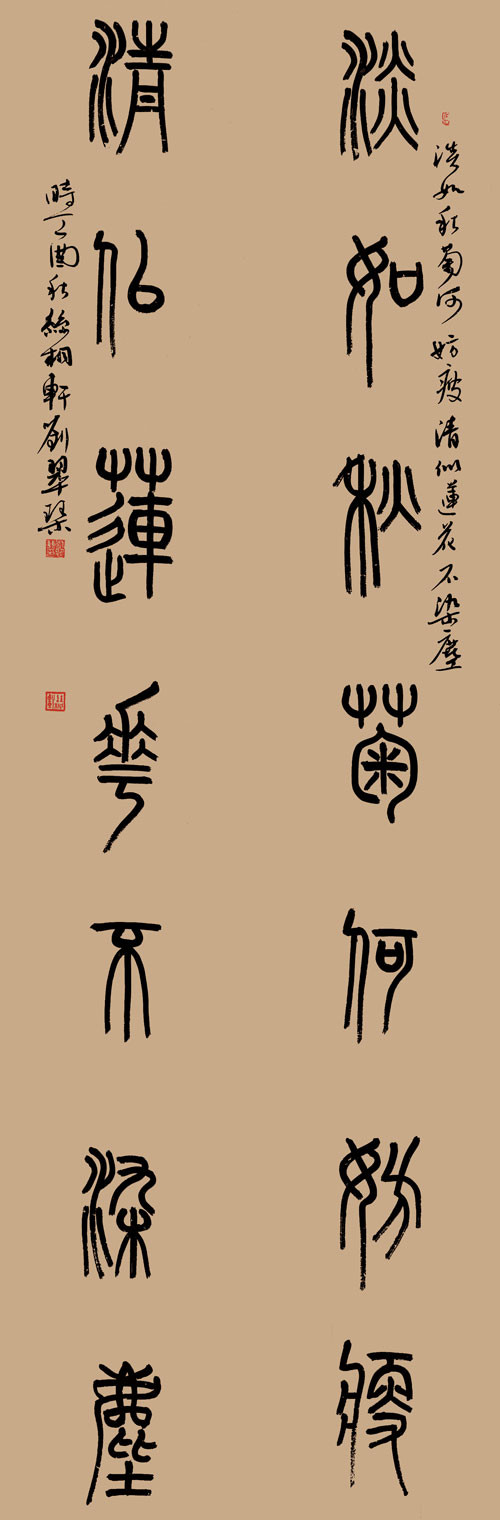 淡如秋菊何妨瘦清似蓮花不染塵
淡如秋菊何妨瘦
清似蓮華不染塵
時丁酉秋絲桐軒劉翠琴